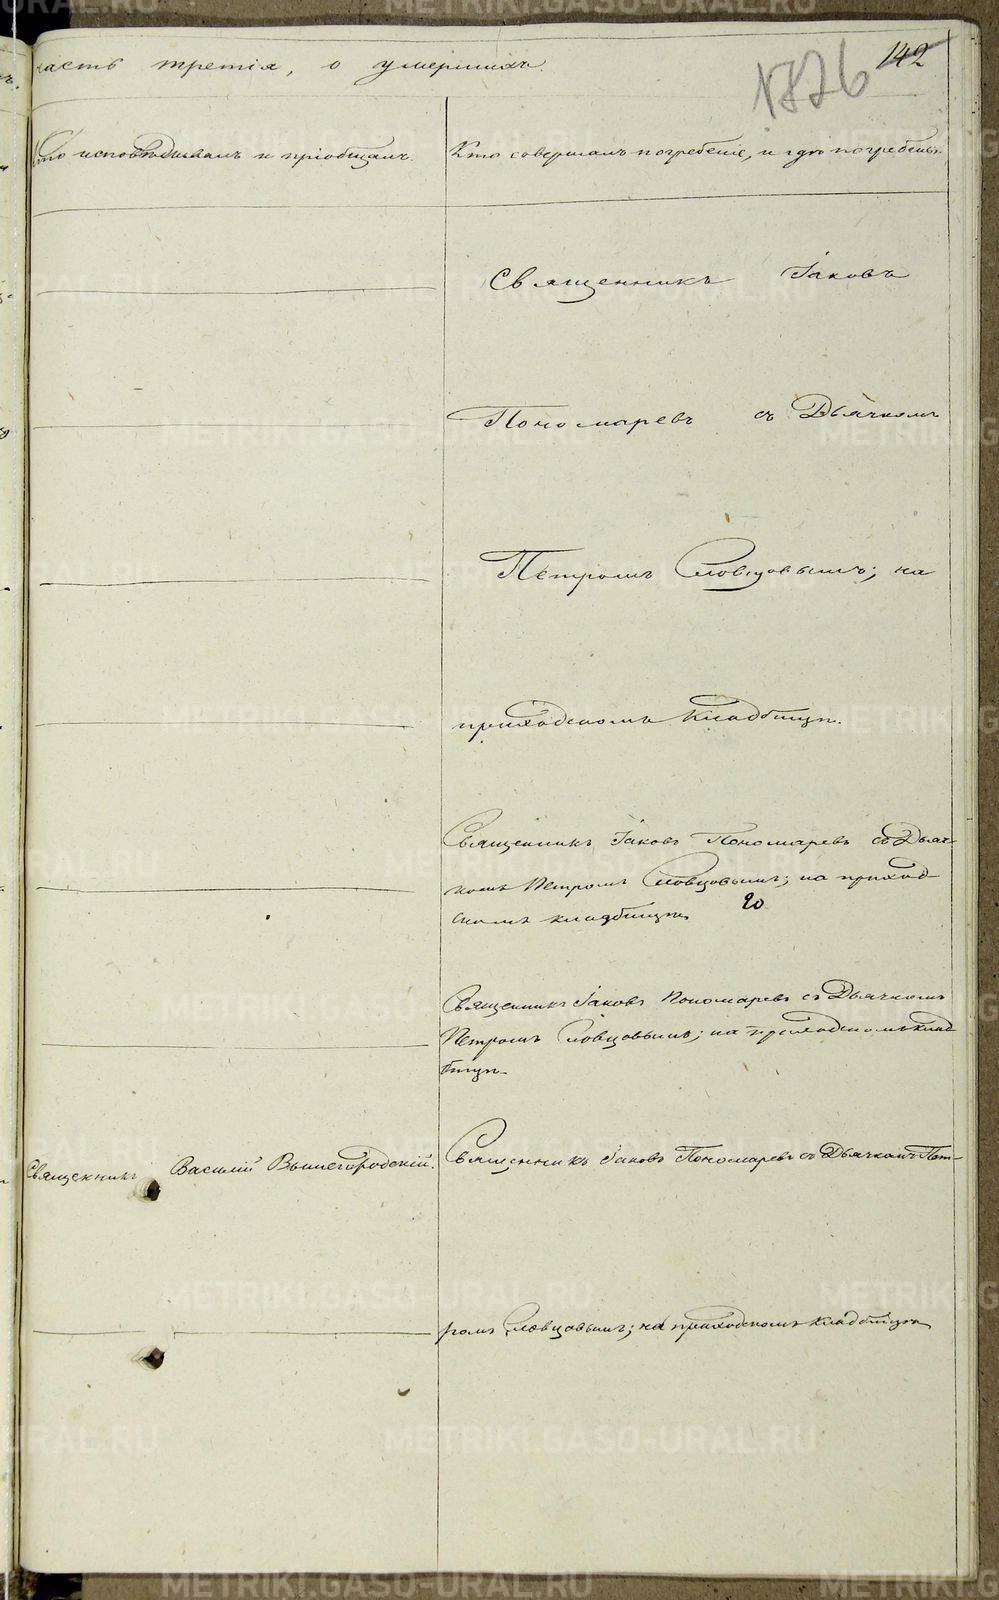 часть третія, о умершихъ.
142
1826
Кто исповѣдывалъ и пріобщалъ.
Кто совершалъ погребеніе, и гдѣ погребены.
Священникъ Іаковъ
Пономаревъ съ Дьячкомъ
Петромъ Словцовымъ; на
приходскомъ кладбищѣ.
Священникъ Іаковъ Пономаревъ съ Дьяч-
комъ Петромъ Словцовымъ; на приход-
скомъ кладбищѣ
20
Священникъ Іаковъ Пономаревъ съ Дьячкомъ
Петромъ Словцовымъ; на приходскомъ клад
бищѣ.
Священникъ Василій Вышегородскій.
Священникъ Іаковъ Пономаревъ съ Дьячкомъ Пет-
ромъ Словцовымъ; на приходскомъ кладбищѣ
METRIKI.GASO-URAL.RU